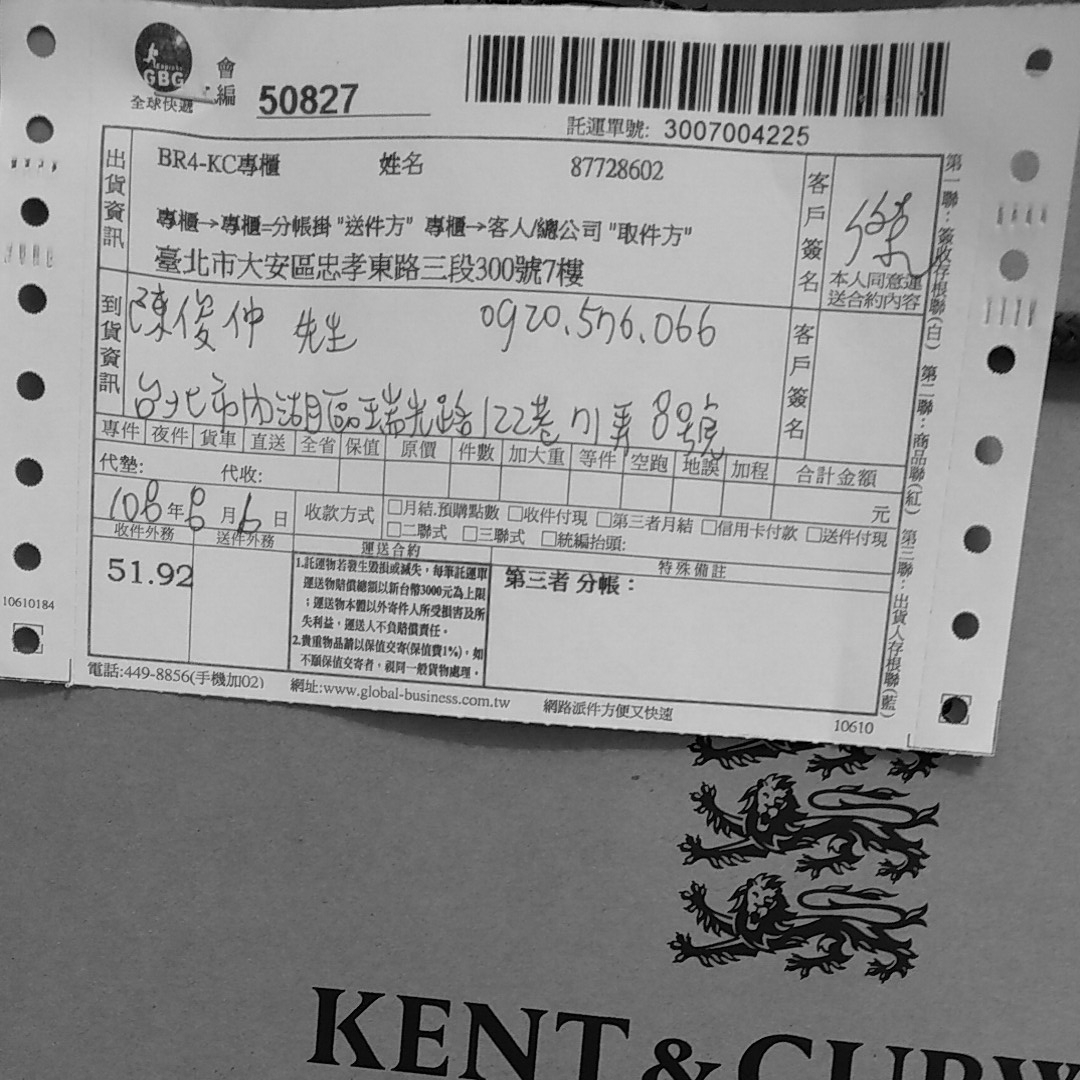 GBG
全球快遞
會編 50827
託運單號: 3007004225
出貨資訊
BR4-KC專櫃 姓名 87728602
專櫃→專櫃=分帳掛 "送件方" 專櫃→客人/總公司 "取件方"
臺北市大安區忠孝東路三段300號7樓
客戶簽名
本人同意運
送合約內容
到貨資訊
陳俊仲 先生 0920.576.066
台北市內湖區瑞光路122巷 弄 8號
客戶簽名
專件 夜件 貨車 直送 全省 保值 原價 件數 加大重 等件 空跑 地誤 加程 合計金額
代墊: 代收: 元
108年8月6日
收款方式 □月結.預購點數 □收件付現 □第三者月結 □信用卡付款 □送件付現
□二聯式 □三聯式 □統編抬頭:
收件外務 送件外務 運送合約 特殊備註
51.92
1.託運物若發生毀損或滅失，每筆託運單
運送物賠償總額以新台幣3000元為上限
；運送物本體以外寄件人所受損害及所
失利益，運送人不負賠償責任。
2.貴重物品請以保值交寄(保值費1%)，如
不願保值交寄者，視同一般貨物處理。
第三者 分帳：
電話:449-8856(手機加02) 網址:www.global-business.com.tw 網路派件方便又快速 10610
10610184
第一聯：簽收存根聯(白) 第二聯：商品聯(紅) 第三聯：出貨人存根聯(藍)
KENT & CURW